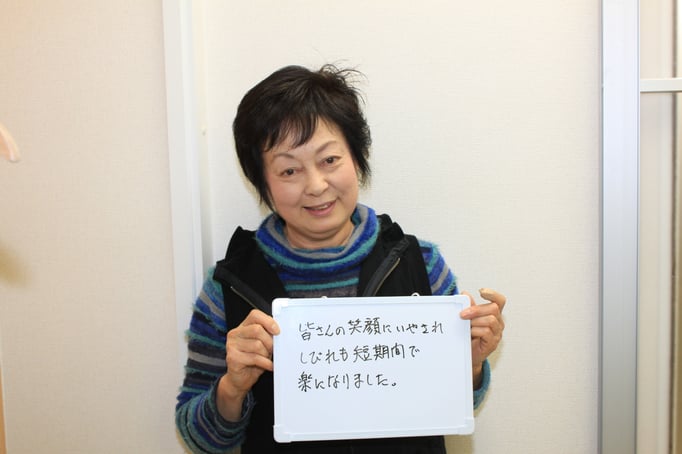 皆さんの笑顔にいやされ
しびれも短期間で
楽になりました。